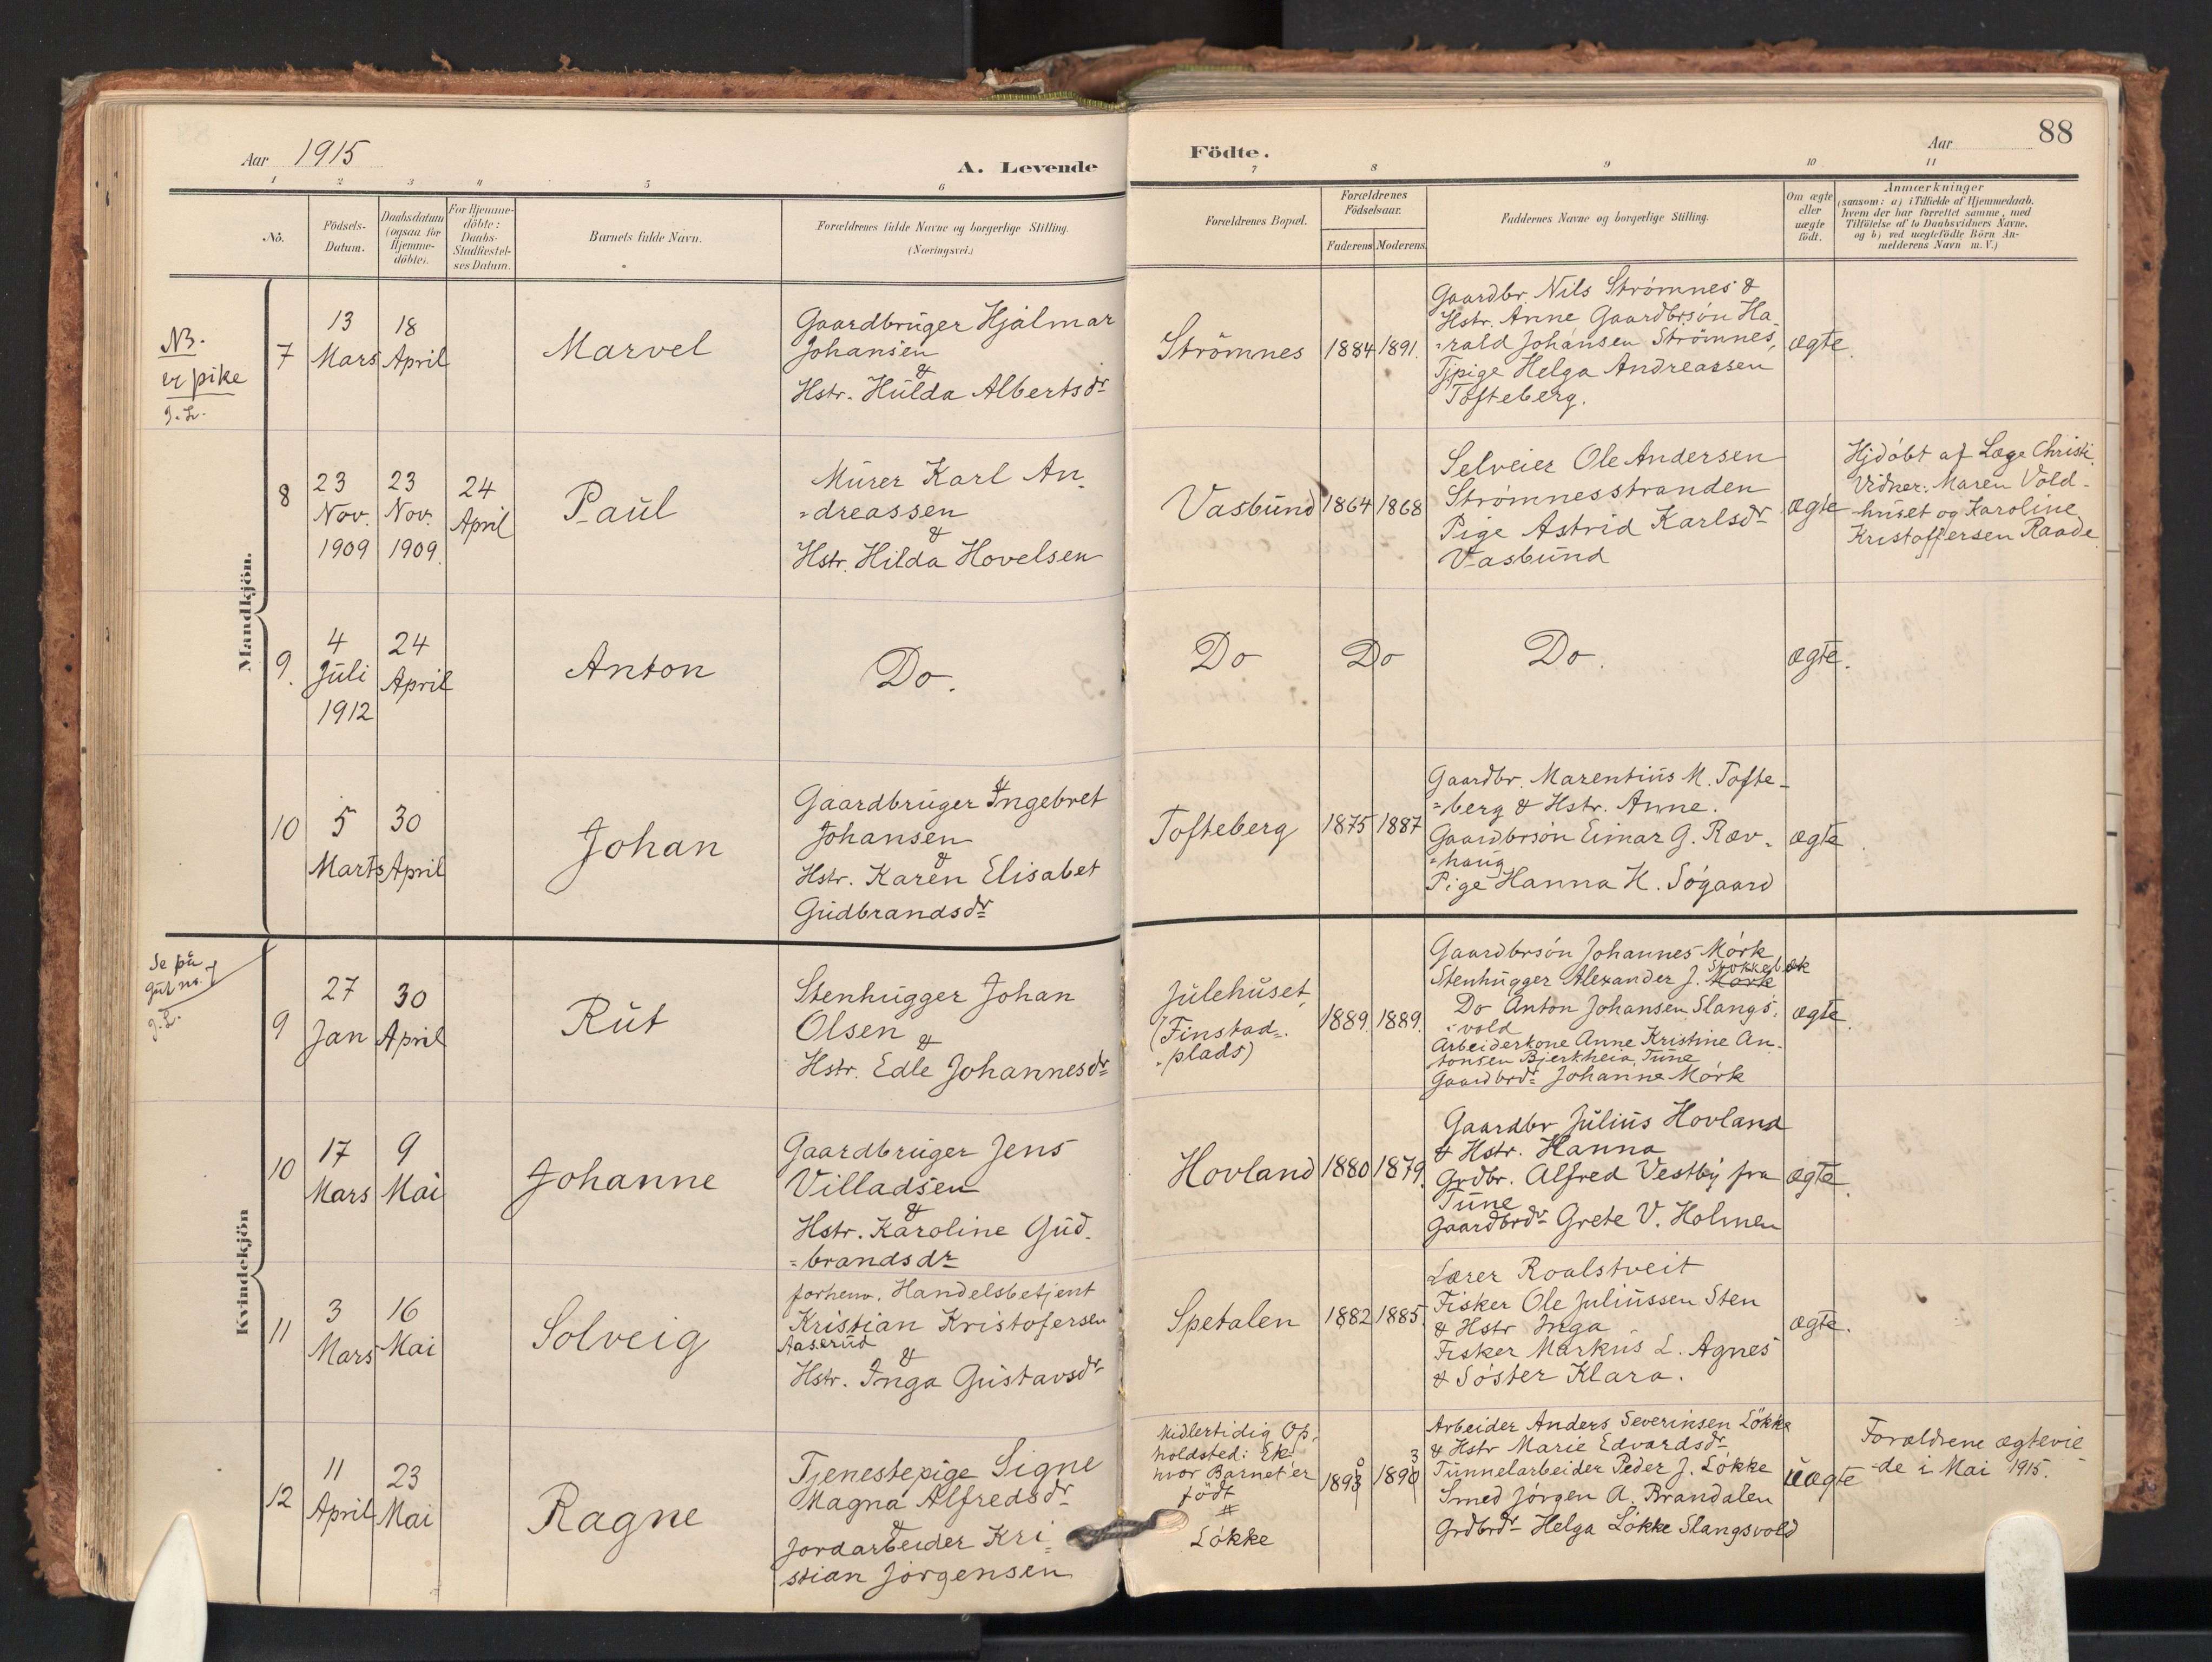 Aar 1915
A. Levende
Födte.
Aar
88
1 2 3 4 5 6 7 8 9 10 11
No.
Födsels-
Datum.
Daabsdatum
(ogsaa for
Hjemme-
döbte).
For Hjemme-
döbte:
Daabs-
Stadfæstel-
ses Datum.
Barnets fulde Navn.
Forældrenes fulde Navne og borgerlige Stilling.
(Næringsvei.)
Forældrenes Bopæl.
Forældrenes
Födselsaar.
Faderens Moderens
Faddernes Navne og borgerlige Stilling.
Om ægte
eller
uægte
födt.
Anmærkninger
(saasom: a) i Tilfælde af Hjemmedaab,
hvem der har forrettet samme, med
Tilföielse af to Daabsvidners Navne,
og b) ved uægtefödte Börn An-
melderens Navn m.V.)
Mandkjön.
NB.
er pike
J. L.
7
13
Mars
18
April
Marvel
Gaardbruger Hjalmar
Johansen
&
Hstr. Hulda Albertsdr
Strömnes
1884 1891.
Gaardbr. Nils Strömnes &
Hstr. Anne Gaardbrsön Ha
-rald Johansen Strömnes,
Tjpige Helga Andreassen
Tofteberg.
ægte.
8
23
Nov.
1909
23
Nov.
1909.
24
April
Paul
Murer Karl An-
-dreassen
&
Hstr. Hilda Hovelsen
Vasbund
1864 1868
Selveier Ole Andersen
Strömnesstranden
Pige Astrid Karlsdr
Vasbund
ægte
Hjdöbt af Læge Christi.
Vidner: Maren Vold-
-huset og Karoline
Kristoffersen Raade.
9.
4
Juli
1912
24
April
Anton
Do.
Do
Do
Do.
ægte.
10
5
Marts
30
April
Johan
Gaardbruger Ingebret
Johansen
&
Hstr. Karen Elisabet
Gudbrandsdr
Tofteberg
1875 1887
Gaardbr. Marentius M. Tofte-
-berg & Hstr. Anne.
Gaardbrsön Einar G. Ræv-
-haug
Pige Hanna H. Sögaard
ægte.
Kvindekjön
Se på
J. L.
9
27
Jan
30
April
Rut
Stenhugger Johan
Olsen
&
Hstr. Edle Johannesdr
Julehuset
(Finstad-
-plads)
1889. 1889.
Gaardbrsön Johannes Mörk
Stenhugger Alexander J. Mörk Stokkebæk
Do Anton Johansen Slangs-
-vold
Arbeiderkone Anne Kristine An-
tonsen Bjerkheia Tune
Gaardbrdr Johanne Mörk
ægte.
10
17
Mars
9
Mai
Johanne
Gaardbruger Jens
Villadsen
&
Hstr. Karoline Gud-
-brandsdr
Hovland
1880 1879.
Gaardbr Julius Hovland
& Hstr. Hanna
Grdbr. Alfred Vestby fra
Tune
Gaardbrdr Grete V. Holmen
ægte.
11
3
Mars
16
Mai
Solveig
forhenv. Handelsbetjent
Kristian Kristofersen
Aaserud
&
Hstr. Inga Gustavsdr
Spetalen
1882 1885.
Lærer Roalstveit
Fisker Ole Juliussen Sten
& Hstr Inga
Fisker Markus L. Agnes
& Söster Klara.
ægte.
12
11
April
23
Mai
Ragne
Tjenestepige Signe
Magna Alfredsdr
&
Jordarbeider Kri-
stian Jörgensen
Midlertidig Op-
holdsted: Ek
hvor Barnet er
födt
#
Lökke
1893 0 1890 3
Arbeider Anders Severinsen Lökke
& Hstr Marie Edvardsdr
Tunnelarbeider Peder J. Lökke
Smed Jörgen A. Brandalen
Grdbrdr Helga Lökke Slangsvold
uægte
Forældrene ægtevie
-de i Mai 1915.